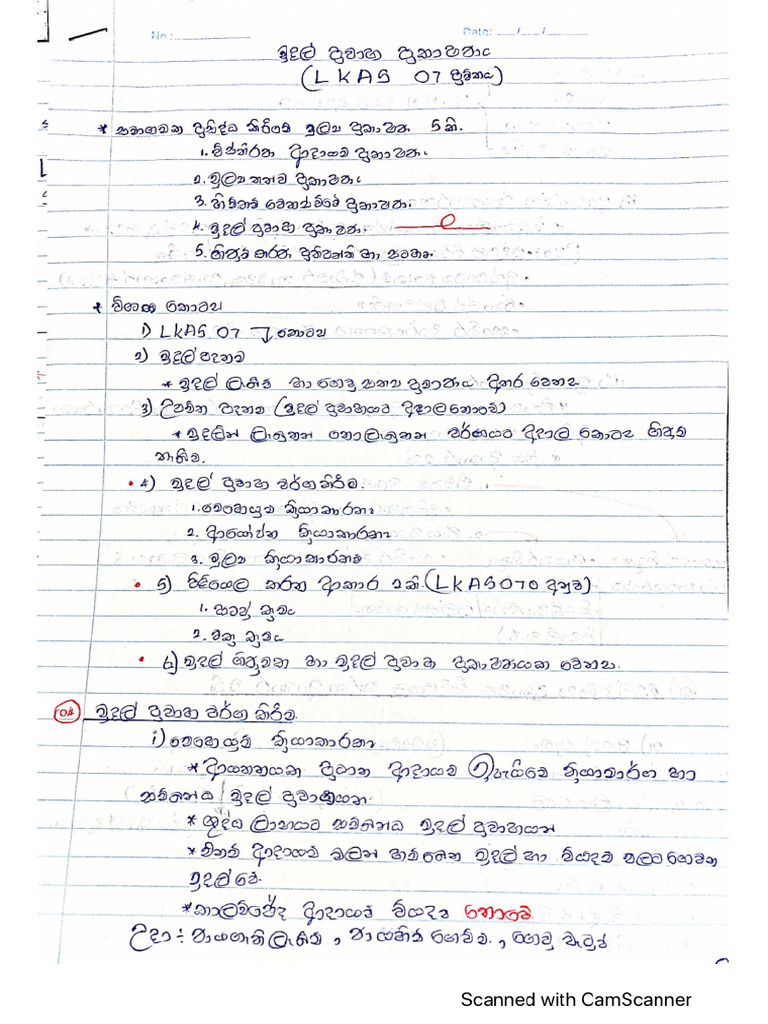 No: Date: / /
මුදල් ප්‍රවාහ ප්‍රකාශනය
(LKAS 07 ප්‍රමිතය)
* සමාගමක ප්‍රසිද්ධ කිරීමේ මූල්‍ය ප්‍රකාශන 5කි.
1. විස්තීරණ ආදායම් ප්‍රකාශන.
2. මූල්‍ය තත්ව ප්‍රකාශන
3. හිමිකම් වෙනස්වීමේ ප්‍රකාශන.
4. මුදල් ප්‍රවාහ ප්‍රකාශන.
5. ගිණුම් කරණ ප්‍රතිපත්ති හා සටහන්.
* විශාල කොටස
1) LKAS 07 කොටස
2) මුදල් පදනම
* මුදල් ලැබීම් හා ගෙවූ අතර වෙනස
3) උපචිත පදනම (මුදල් ප්‍රවාහයට අදාල නොවේ)
* මුදලින් ලැබුනත් නොලැබුනත් වර්ෂයට අදාල කොටස ගිණුම්
තැබීම.
4) මුදල් ප්‍රවාහ වර්ග කිරීම.
1. මෙහෙයුම් ක්‍රියාකාරකම්
2. ආයෝජන ක්‍රියාකාරකම්
3. මූල්‍ය ක්‍රියාකාරකම්
5) පිළියෙල කරන ආකාර 2කි. (LKAS 07ට අනුව)
1. සෘජු ක්‍රමය
2. වක්‍ර ක්‍රමය
6) මුදල් ගිණුමක හා මුදල් ප්‍රවාහ ප්‍රකාශනයක වෙනස.
04 මුදල් ප්‍රවාහ වර්ග කිරීම.
i) මෙහෙයුම් ක්‍රියාකාරකම්
* ආයතනයක ප්‍රධාන ආදායම් ඉපැයීමේ ක්‍රියාමාර්ග හා
සම්බන්ධ මුදල් ප්‍රවාහයන්.
* ශුද්ධ ලාභයට සම්බන්ධ මුදල් ප්‍රවාහයන්
* එනම් ආදායම් වලින් මුදල් හා වියදම් වලට ගෙවන
මුදල් වේ.
* කාලච්ඡේද ආදායම් වියදම් නොවේ
උදා :- ණයගැති ලැබීම්, ණයහිමි ගෙවීම්, ගෙවූ වැටුප්
Scanned with CamScanner